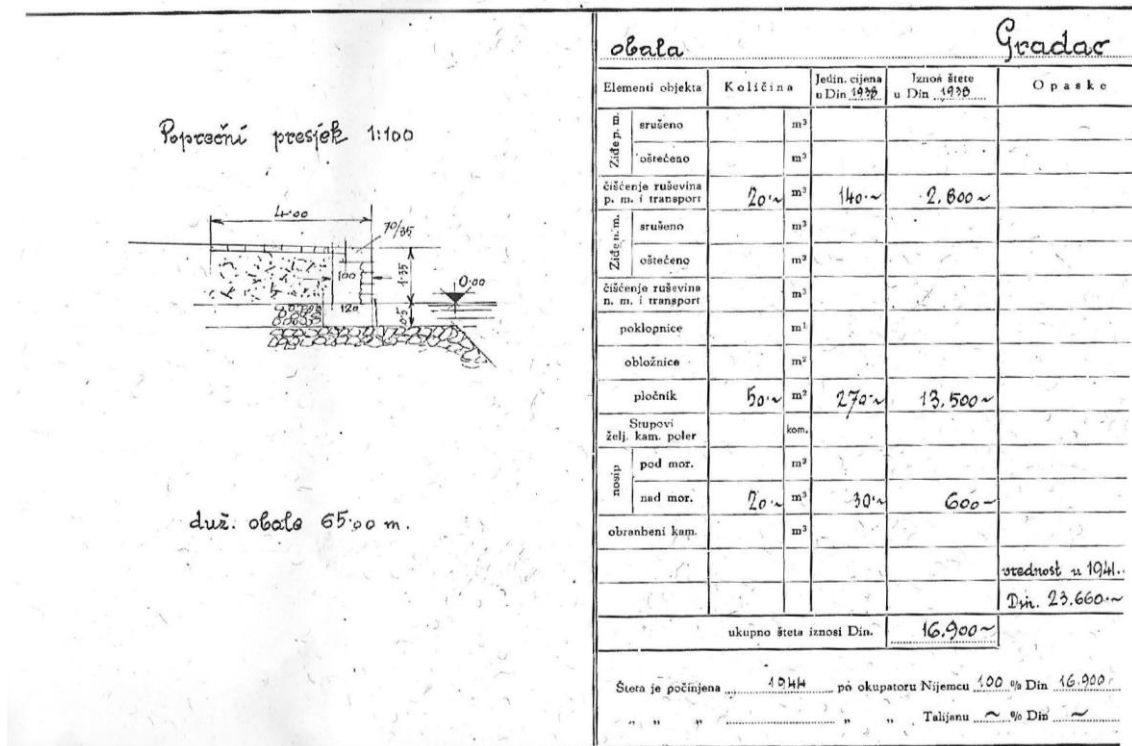 Poprečni presjek 1:100
4.00
70/35
100
1.35
0.00
120
0.5
duž. obale 65.00 m.
obala Gradac
Elementi objekta Količina Jedin. cijena u Din 1938 Iznos štete u Din 1938 Opaske
Ziđe p. m. srušeno m³
oštećeno m³
čišćenje ruševina p. m. i transport 20.~ m³ 140.~ 2.800~
Ziđe n. m. srušeno m³
oštećeno m³
čišćenje ruševina n. m. i transport m³
poklopnice m¹
obložnice m²
pločnik 50.~ m² 270.~ 13.500~
Stupovi želj. kam. poler kom.
nosip pod mor. m³
nad mor. 20.~ m³ 30.~ 600-
obranbeni kam. m³
vrednost u 1941.
Din. 23.660.~
ukupno šteta iznosi Din. 16.900~
Šteta je počinjena 1944 po okupatoru Nijemcu 100 % Din 16.900
„ „ „ „ „ Talijanu ~ % Din ~